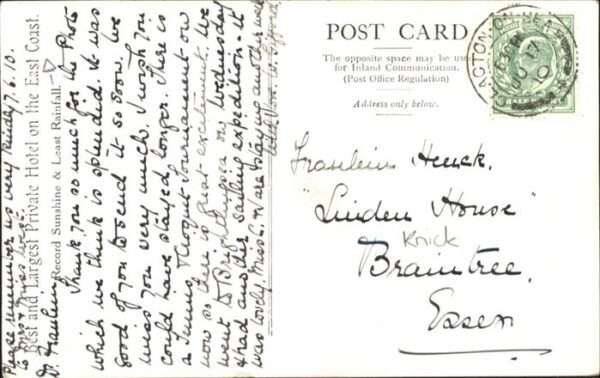 Best and Largest Private Hotel on the East Coast.
Record Sunshine & Least Rainfall.
7.6.10.
D. Fraulein
Thank you so much for the Photo
which we think is splendid. it was
good of you to send it so soon. We
miss you very much. I wish you
could have stayed longer. There is
a Tennis & Croquet Tournament on
now so there is great excitement. We
went to Brightlingsea on Wednesday
& had another sailing expedition - it
was lovely. Miss C. & N are staying another week
Please remember us very kindly
to
POST CARD
The opposite space may be used
for Inland Communication.
(Post Office Regulation)
Address only below.
CLACTON-ON-SEA
JU
10
Fraulein Heuck.
"Linden House"
Knick
Braintree.
Essex